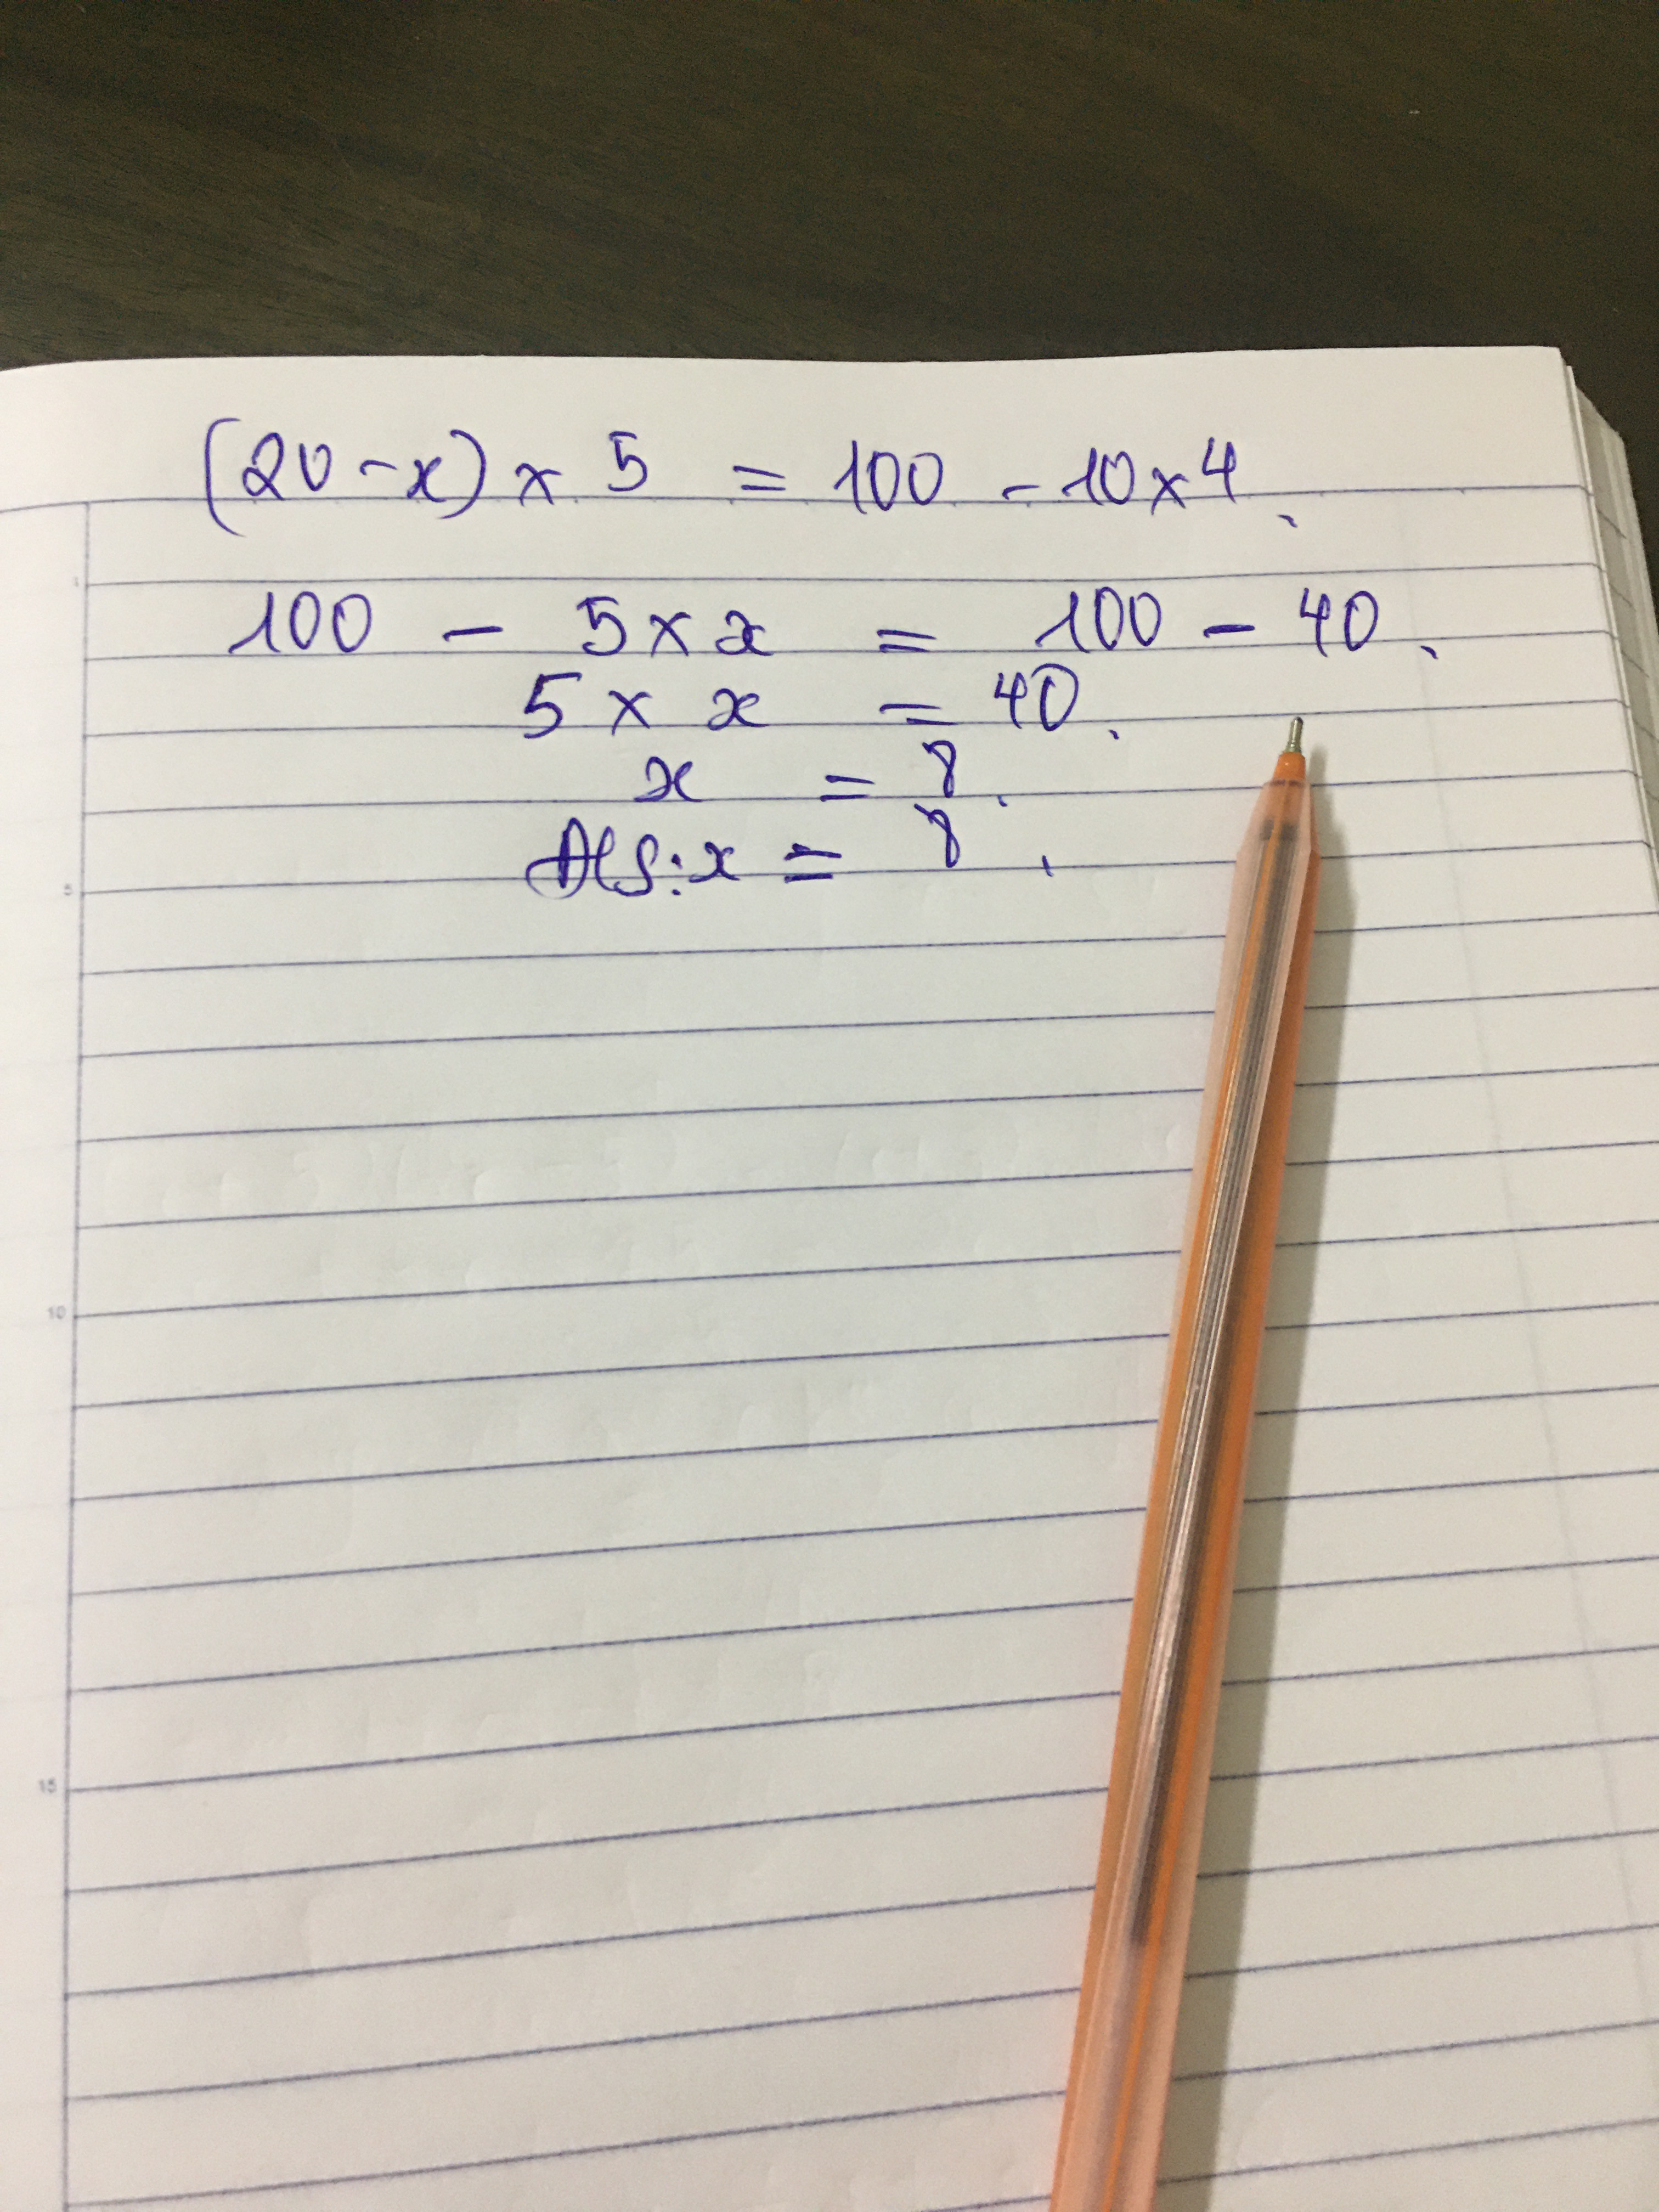 (20-x) x 5 = 100 - 10x4.
100 - 5 x x = 100 - 40.
5 x x = 40.
x = 8.
x = 8.
1
5
10
15